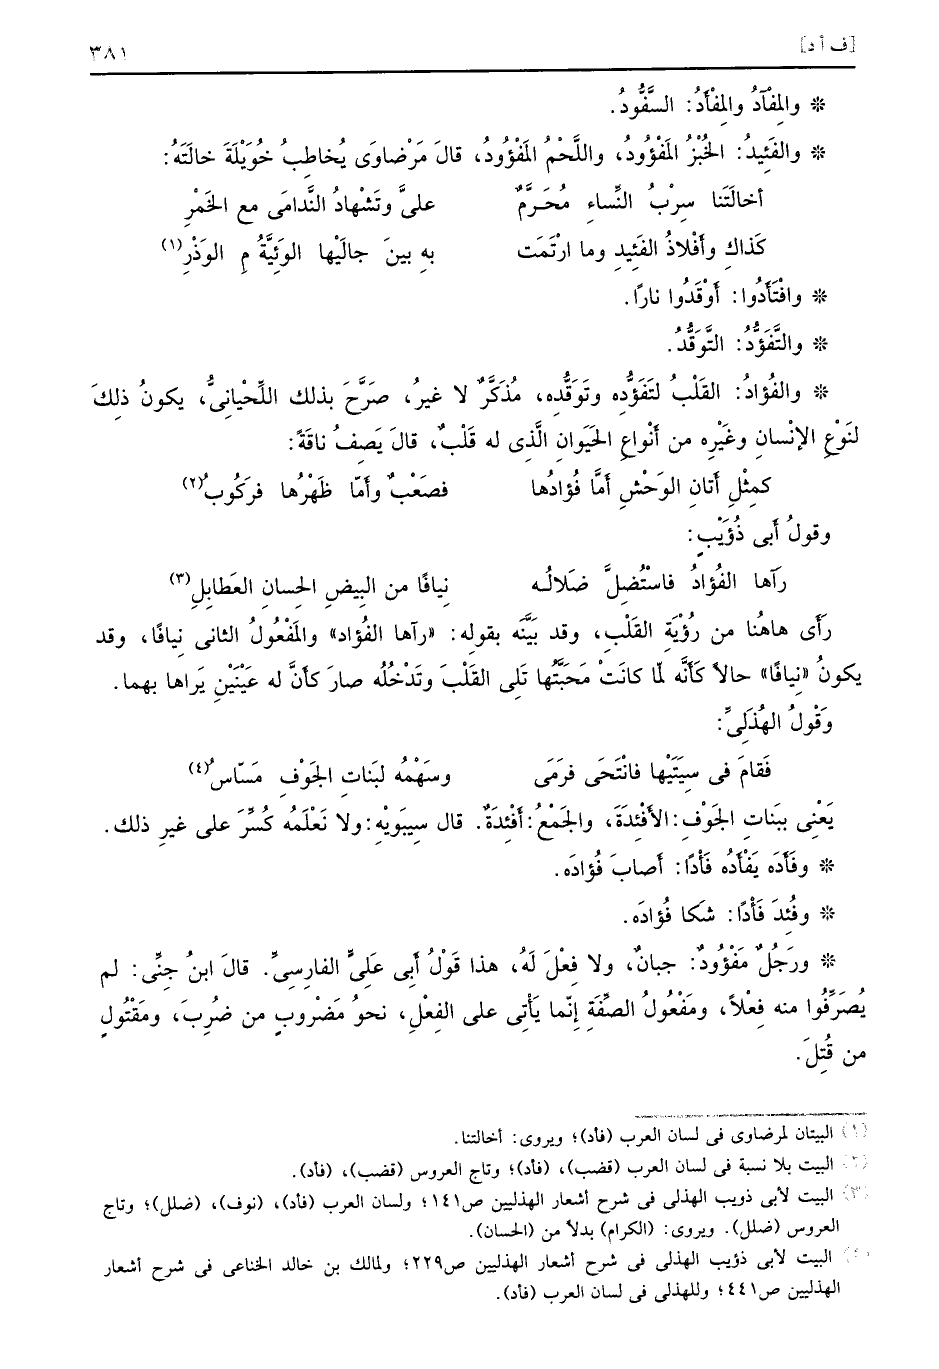 [ف أ د] ٣٨١
* والمِفْآدُ والمِفْأَدُ: السَّفُّودُ.
* والفَئِيدُ: الخُبْزُ المَفْؤُودُ، واللَّحْمُ المَفْؤُودُ، قالَ مَرْضاوَى يُخاطِبُ خُوَيْلَةَ خالتَهُ:
أخالَتَنا سِرْبُ النِّساءِ مُحَرَّمٌ علىَّ وتَشْهادُ النَّدامَى مع الخَمْرِ
كَذاكِ وأفْلاذُ الفَئِيدِ وما ارْتَمَت بهِ بينَ جالَيْها الوَئِيَّةُ مِ الوَذْرِ(١)
* وافْتَأَدُوا: أوْقَدُوا نارًا.
* والتَّفَؤُّدُ: التَّوَقُّدُ.
* والفُؤادُ: القَلْبُ لتَفَؤُّده وتَوَقُّده، مُذكَّرٌ لا غيرُ، صَرَّحَ بذلك اللِّحْيانىُّ، يكونُ ذلِكَ
لنَوْعِ الإنْسانِ وغَيْرِه من أنْواعِ الحَيَوانِ الَّذى له قَلْبٌ، قالَ يَصِفُ ناقَةً:
كمِثْلِ أتانِ الوَحْشِ أمَّا فُؤادُها فصَعْبٌ وأمّا ظَهْرُها فرَكُوبُ(٢)
وقولُ أبى ذُؤَيْبٍ:
رَآها الفُؤادُ فاسْتُضِلَّ ضَلالُـه نِيافًا من البِيضِ الحِسانِ العَطابِلِ(٣)
رَأى هاهُنا من رُؤْيَةِ القَلْبِ، وقد بَيَّنَه بقوله: «رآها الفُؤاد» والمَفْعُولُ الثانى نِيافًا، وقد
يكونُ «نِيافًا» حالاً كَأنَّه لمّا كانَتْ مَحَبَّتُها تَلِى القَلْبَ وتَدْخُلُه صارَ كأنَّ له عَيْنَيْنِ يَراها بهما.
وَقَوْلُ الهُذَلِىِّ:
فَقامَ فى سِيَتَيْها فانْتَحَى فرَمَى وسَهْمُه لبَناتِ الجَوْفِ مَسّاسُ(٤)
يَعْنِى ببَناتِ الجَوْفِ: الأفْئِدَةَ، والجَمْعُ: أفْئِدَةٌ. قال سِيبَوَيْهِ: ولا نَعْلَمُه كُسِّرَ على غيرِ ذلك.
* وفَأَدَه يَفْأَدُه فَأْدًا: أصابَ فُؤادَه.
* وفُئِدَ فَأْدًا: شَكا فُؤادَه.
* ورَجُلٌ مَفْؤُودٌ: جبانٌ، ولا فِعْلَ لَهُ، هذا قَوْلُ أبى عَلِىٍّ الفارسِىِّ. قالَ ابنُ جِنِّى: لم
يُصَرِّفُوا منه فِعْلاً، ومَفْعُولُ الصِّفَةِ إنّما يَأْتِى على الفِعْلِ، نحوُ مَضْرُوبٍ من ضُرِبَ، ومَقْتُولٍ
من قُتِلَ.
(١) البيتان لمرضاوى فى لسان العرب (فأد)؛ ويروى: أخالتنا.
(٢) البيت بلا نسبة فى لسان العرب (قضب)، (فأد)؛ وتاج العروس (قضب)، (فأد).
(٣) البيت لأبى ذويب الهذلى فى شرح أشعار الهذليين ص١٤١؛ ولسان العرب (فأد)، (نوف)، (ضلل)؛ وتاج
العروس (ضلل). ويروى: (الكرام) بدلاً من (الحسان).
(٤) البيت لأبى ذؤيب الهذلى فى شرح أشعار الهذليين ص٢٢٩؛ ولمالك بن خالد الخناعى فى شرح أشعار
الهذليين ص٤٤١؛ وللهذلى فى لسان العرب (فأد).